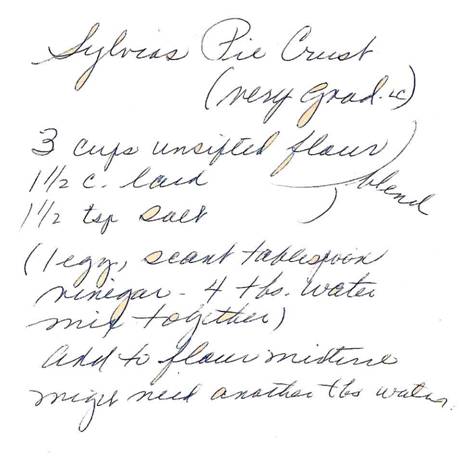 Sylvias Pie Crust
(very good.
3 cups unsifted flour
1 1/2 c. lard
blend
1 1/2 tsp salt
(1 egg, scant tablespoon
vinegar - 4 tbs. water
mix together)
add to flour mixture
might need another tbs water.